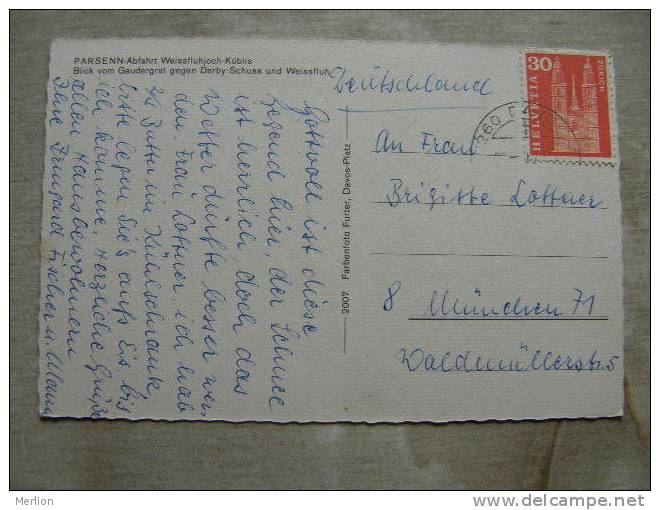 PARSENN-Abfahrt Weissfluhjoch-Küblis
Blick vom Gaudergrat gegen Derby-Schuss und Weissfluh
Deutschland
Gottvoll ist diese
Gegend hier, der Schnee
ist herrlich doch das
Wetter dürfte besser wer
den Frau Lottner, ich hab
Butter im Kühlschrank
bitte legen Sie's aufs Eis bis
ich komme, herzliche Grüße
allen Hausbewohnern
Ihre Irmgard Fischer u. Mann
2007 Farbenfoto Furter, Davos-Platz
30
HELVETIA
ZUERICH
An Frau
Brigitte Lottner
8 München 71
Waldmüllerstr 5
Merlion
www.delcampe.net